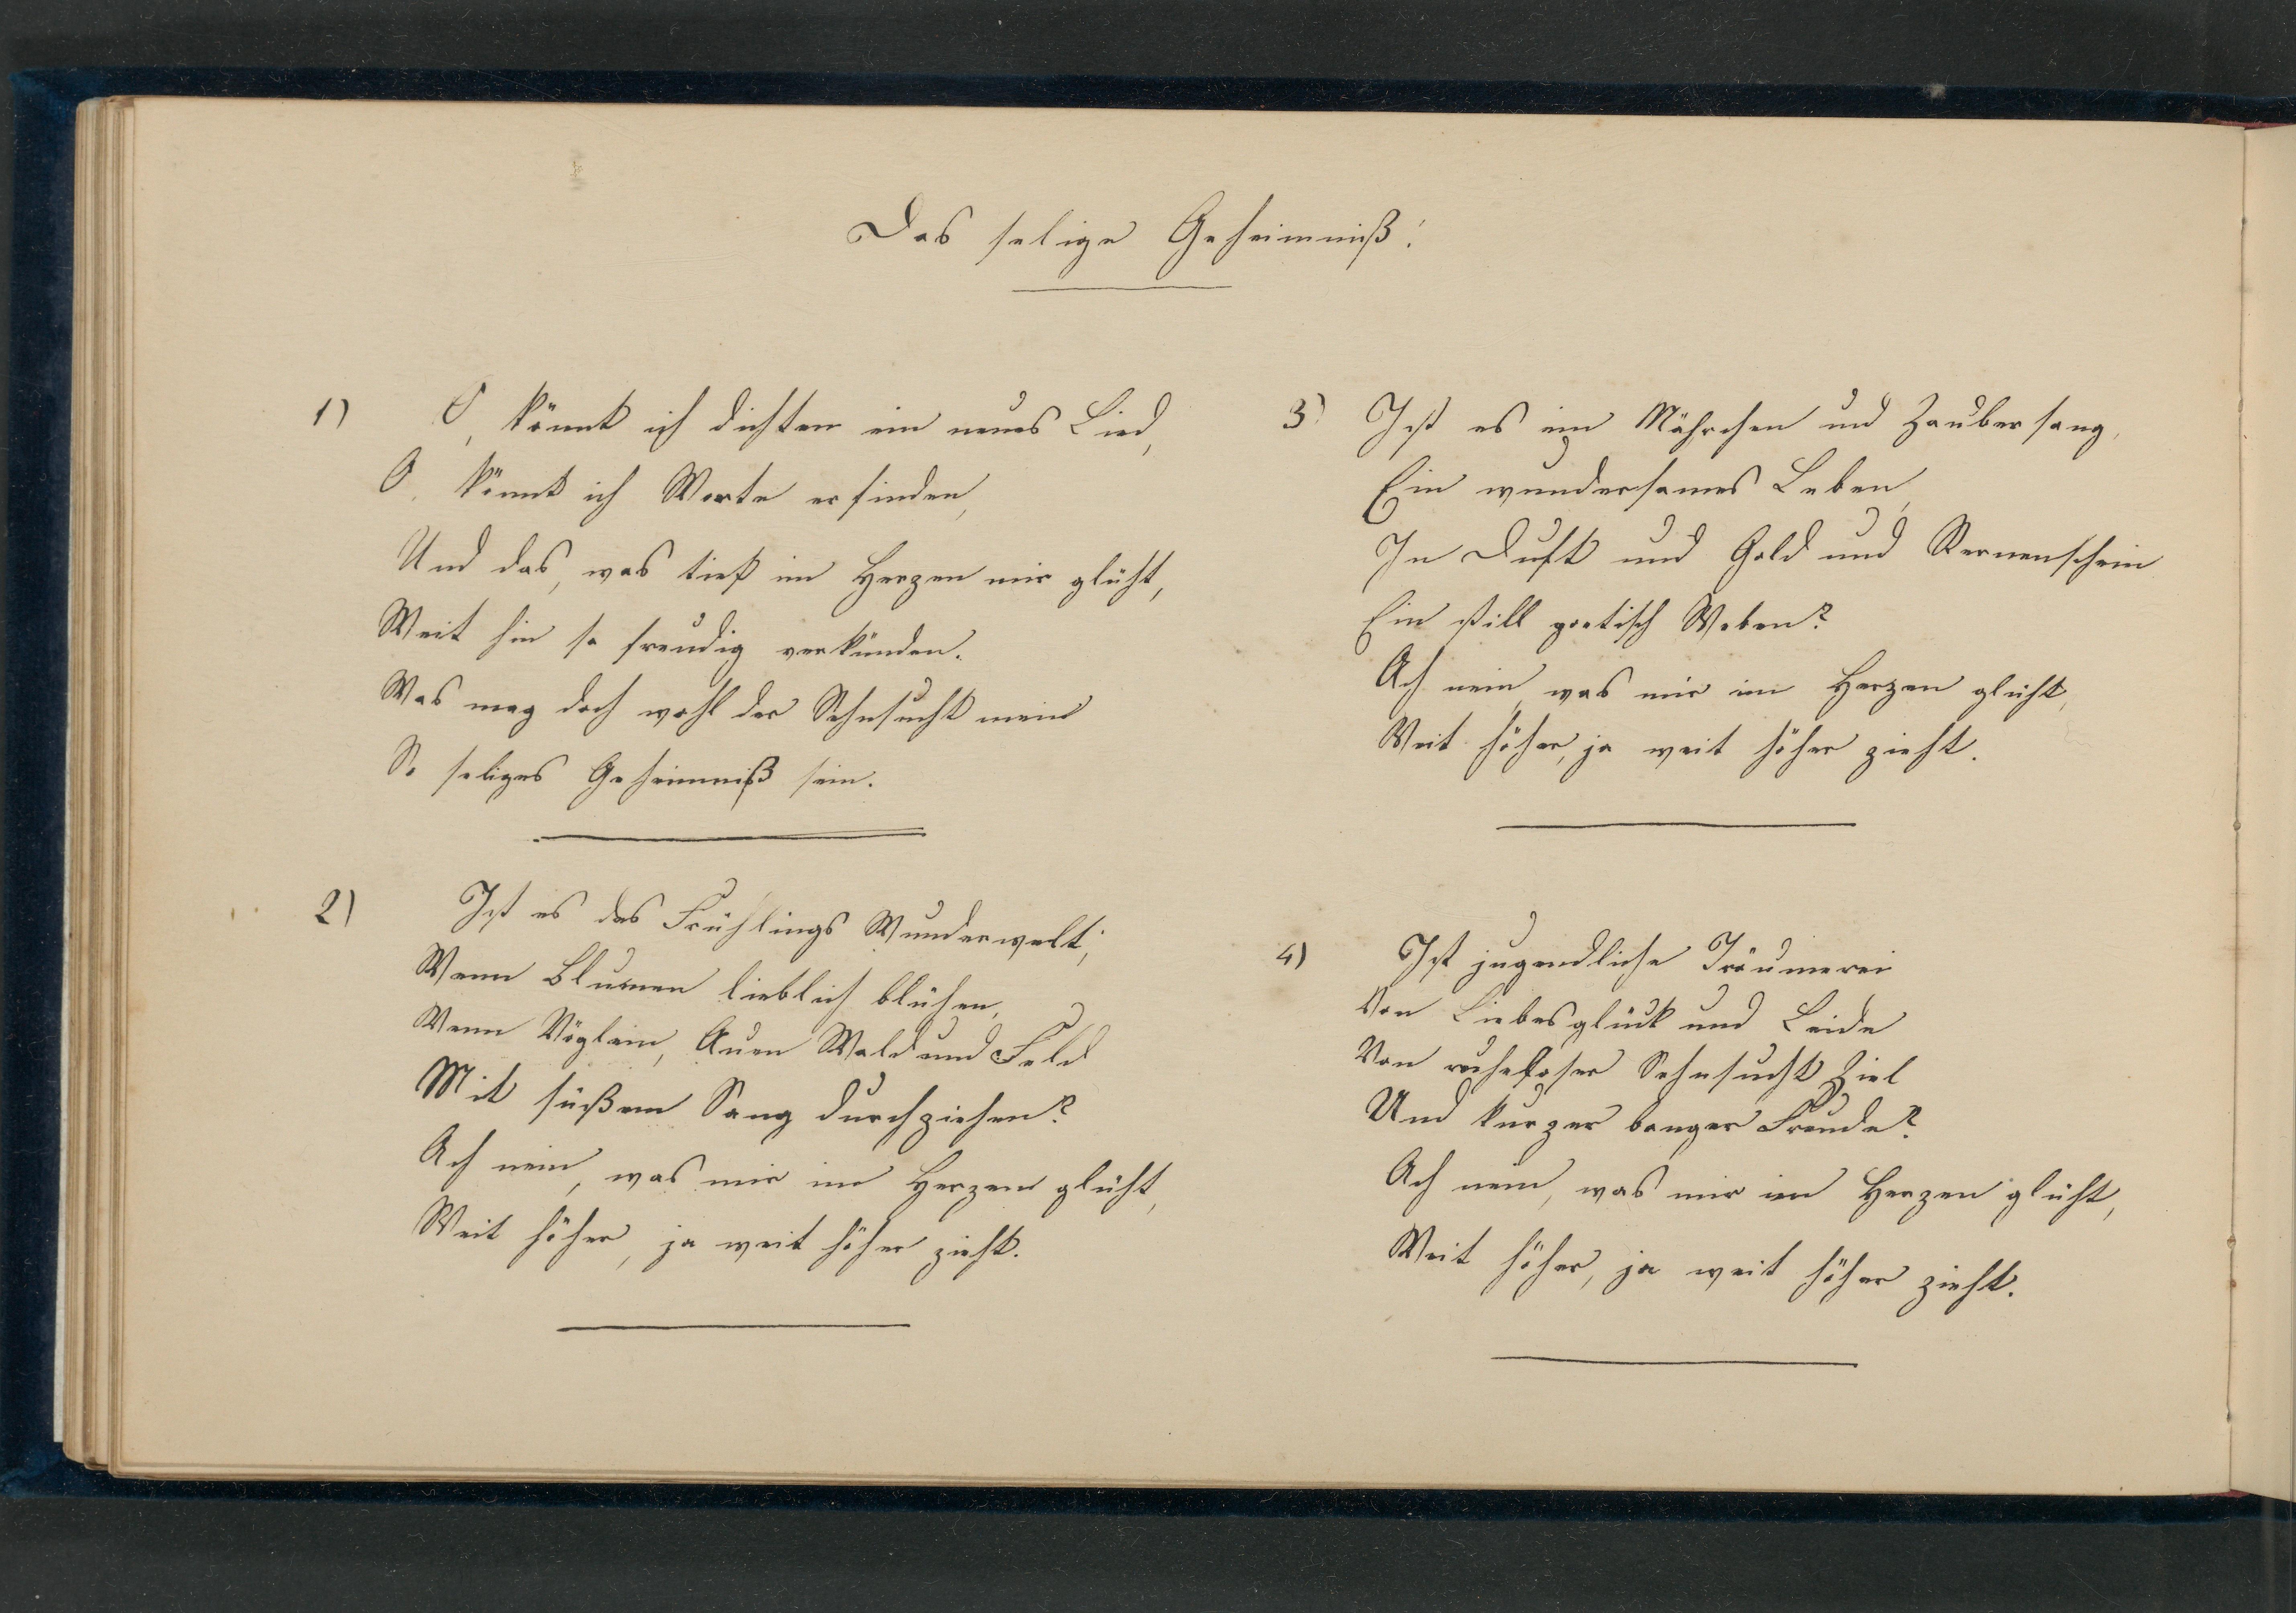 Das selige Geheimniß!
1) O, könnt ich dichten ein neues Lied,
O, könnt ich Worte erfinden,
Und das, was tief im Herzen mir glüht,
Weit hin so freudig verkünden.
Was mag doch wohl der Sehnsucht mein
So seliges Geheimniß sein.
2) Ist es des Frühlings Wunderwelt;
Wenn Blumen lieblich blühen,
Wenn Vöglein, Auen Wald und Feld
Mit süßem Sang durchziehen?
Ach nein, was mir im Herzen glüht,
Weit höher, ja weit höher zieht.
3) Ist es ein Mährchen und Zaubersang,
Ein wundersames Leben,
In Duft und Gold und Sternenschein
Ein still poetisch Weben?
Ach nein, was mir im Herzen glüht,
Weit höher, ja weit höher zieht.
4) Ist jugendliche Träumerei
Von Liebesglück und Leide
Von ruheloser Sehnsucht Ziel
Und kurzer banger Freude?
Ach nein, was mir im Herzen glüht,
Weit höher, ja weit höher zieht.